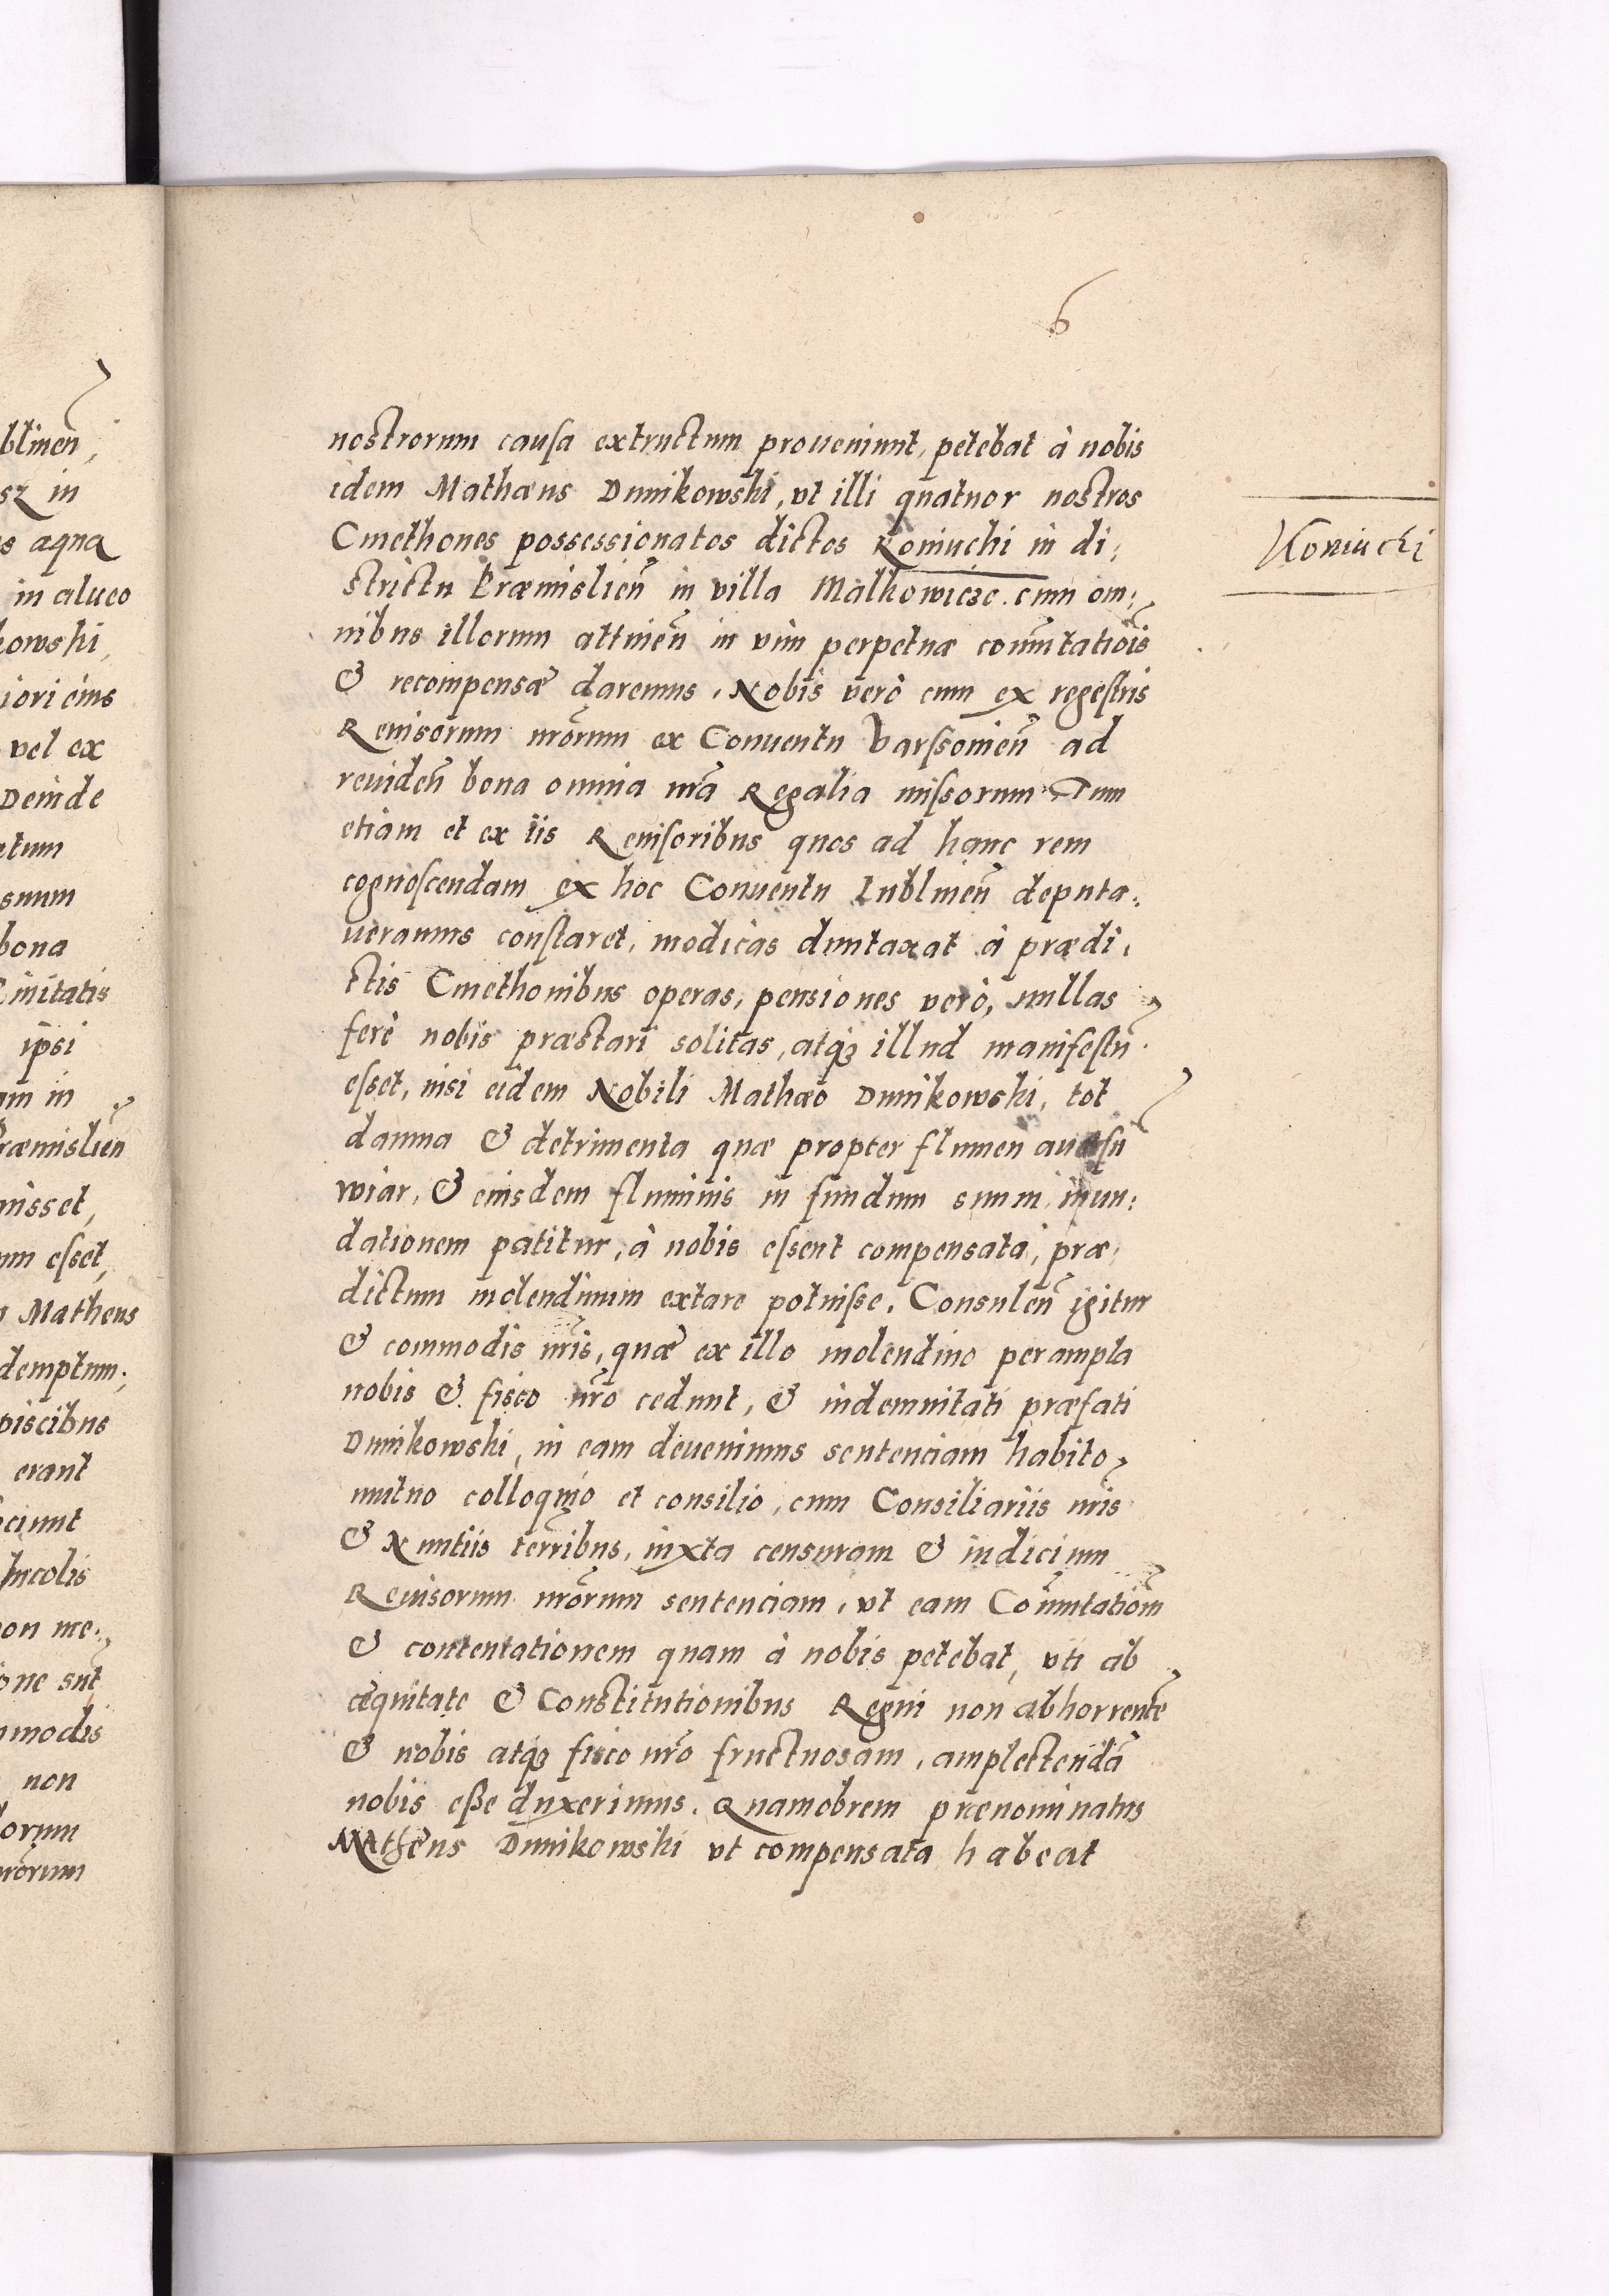 6
nostrorum causa extructum proueniunt, petebat à nobis
idem Mathæus Dunikowski, vt illi quatuor nostros
Cmethones possessionatos dictos Koniuchi in di:
Koniuchi
strictu Præmislieñ in villa Malkowicze. cum om:
nibus illorum attineñ in vim perpetuæ com̃utatiõis
& recompensæ daremus, Nobis verò cum ex regestris
Reuisorum nr̃orum ex Conuentu Varssouieñ ad
reuideñ bona omnia nr̃a Regalia missorum Tum
etiam et ex iis Reuisoribus quos ad hanc rem
cognoscendam ex hoc Conuentu Lublineñ deputa:
ueramus constaret, modicas duntaxat à prædi:
ctis Cmethonibus operas, pensiones verò, nullas
ferè nobis præstari solitas, atq3 illud manifestũ
esset, nisi eidem Nobili Mathæo Dunikowski, tot
damna & detrimenta quæ propter flumen auersũ
wiar, & eiusdem fluminis in fundum suum inun:
dationem patitur, à nobis essent compensata, præ:
dictum molendinum extare potuisse. Consuleñ igitur
& commodis nr̃is, quæ ex illo molendino perampla
nobis & fisco nr̃o cedunt, & indemnitati præfati
Dunikowski, in eam deuenimus sentenciam habito
mutuo colloquio et consilio, cum Consiliariis nr̃is
& Nuntiis terr̃ibus, iuxta censuram & iudicium
Reuisorum nr̃orum sentenciam, vt eam Com̃utatiom̃
& contentationem quam à nobis petebat, vti ab
æquitate & Constitutionibus Regni non abhorrentẽ
& nobis atq3 fisco nr̃o fructuosam, amplectendã
nobis esse duxerimus. Quamobrem prænominatus
Mathæus Dunikowski vt compensata habeat